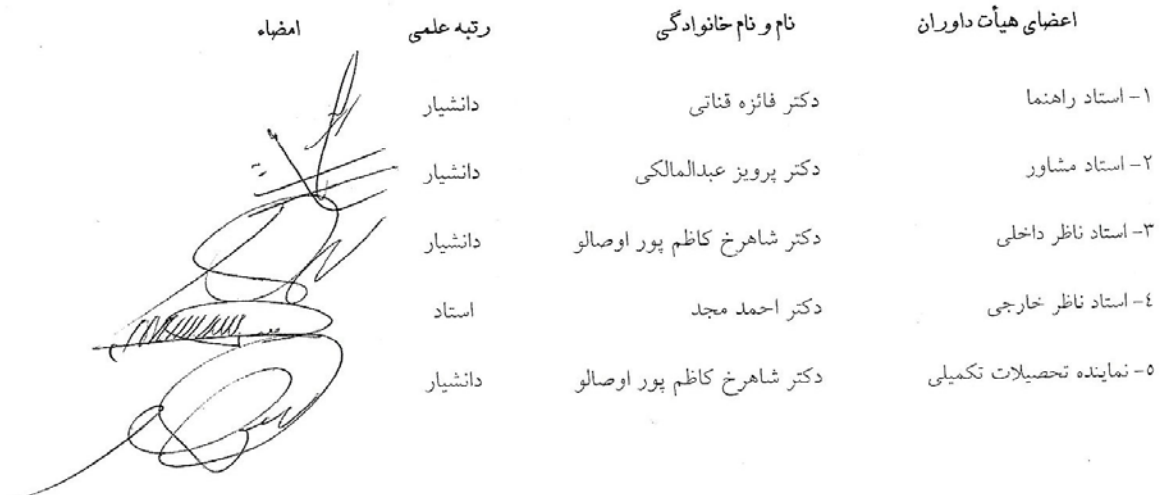 اعضای هیأت داوران نام و نام خانوادگی رتبه علمی امضاء
۱- استاد راهنما دکتر فائزه قناتی دانشیار
۲- استاد مشاور دکتر پرویز عبدالمالکی دانشیار
۳- استاد ناظر داخلی دکتر شاهرخ کاظم پور اوصالو دانشیار
٤- استاد ناظر خارجی دکتر احمد مجد استاد
٥- نماینده تحصیلات تکمیلی دکتر شاهرخ کاظم پور اوصالو دانشیار